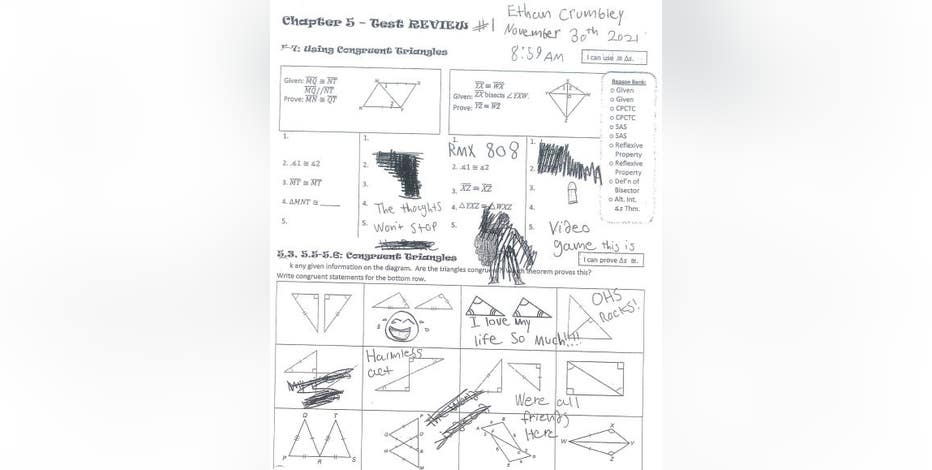 Chapter 5 - Test REVIEW #1
Ethan Crumbley
November 30th 2021
8:59 AM
Using Congruent Triangles
I can use ≅ Δs.
Given: MQ ≅ NT
MQ//NT
Prove: MN ≅ QT
YX ≅ WX
Given: ZX bisects ∠YXW.
Prove: YZ ≅ WZ
Reason Bank:
o Given
o Given
o CPCTC
o CPCTC
o SAS
o SAS
o Reflexive
Property
o Reflexive
Property
o Def'n of
Bisector
o Alt. Int.
∡s Thm.
1.
2. ∡1 ≅ ∡2
3. MT ≅ MT
4. ΔMNT ≅ _____
5.
1.
2.
3.
4. The thoughts
5. Won't STOP
1.
RMX 808
2. ∡1 ≅ ∡2
3. XZ ≅ XZ
4. ΔYXZ ≅ ΔWXZ
5.
1.
2.
3.
4.
5. Video
game this is
5.3, 5.5-5.6: Congruent Triangles
I can prove Δs ≅.
k any given information on the diagram. Are the triangles congruent? Which theorem proves this?
Write congruent statements for the bottom row.
OHS
Rocks!
I love my
life So Much!!!!
Harmless
act
Were all
friends
Here
Q T
P R S
W X Y Z